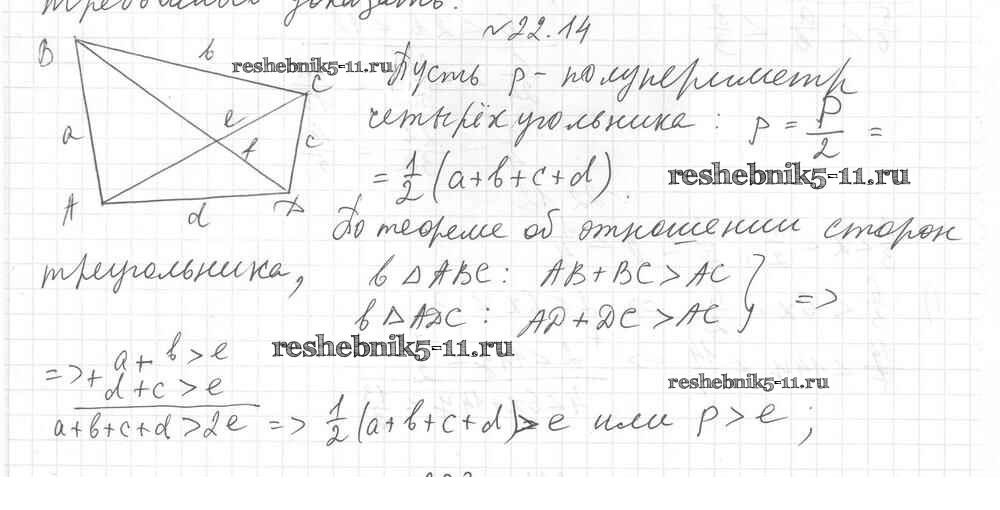 требовалось доказать.
№22.14
B
b
reshebnik5-11.ru
C
Пусть p - полупериметр
a
e
f
c
четырёхугольника: p = P/2 =
A
d
D
= 1/2 (a+b+c+d)
reshebnik5-11.ru
По теореме об отношении сторон
треугольника,
в △ABC: AB+BC>AC
=>
в △ADC: AD+DC>AC
reshebnik5-11.ru
=> + a+b>e
d+c>e
reshebnik5-11.ru
a+b+c+d>2e => 1/2 (a+b+c+d)>e или p>e;